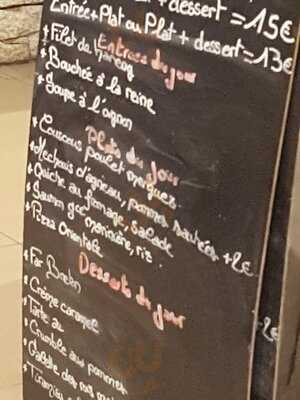 + dessert = 15€
Entrée + Plat ou Plat + dessert = 13€
Entrées du jour
* Filet de hareng
* Bouchée à la reine
* Soupe à l'oignon
Plats du jour
* Couscous poulet merguez
* Mechouis d'agneau, pommes sautées +2€
* Quiche au fromage, salade
* Saumon marinière, ris
* Pizza Orientale
Desserts du jour
* Far Breton
* Crème caramel
* Tarte au
* Crumble aux pommes
* Galette des rois
* Tiramisu
+2€